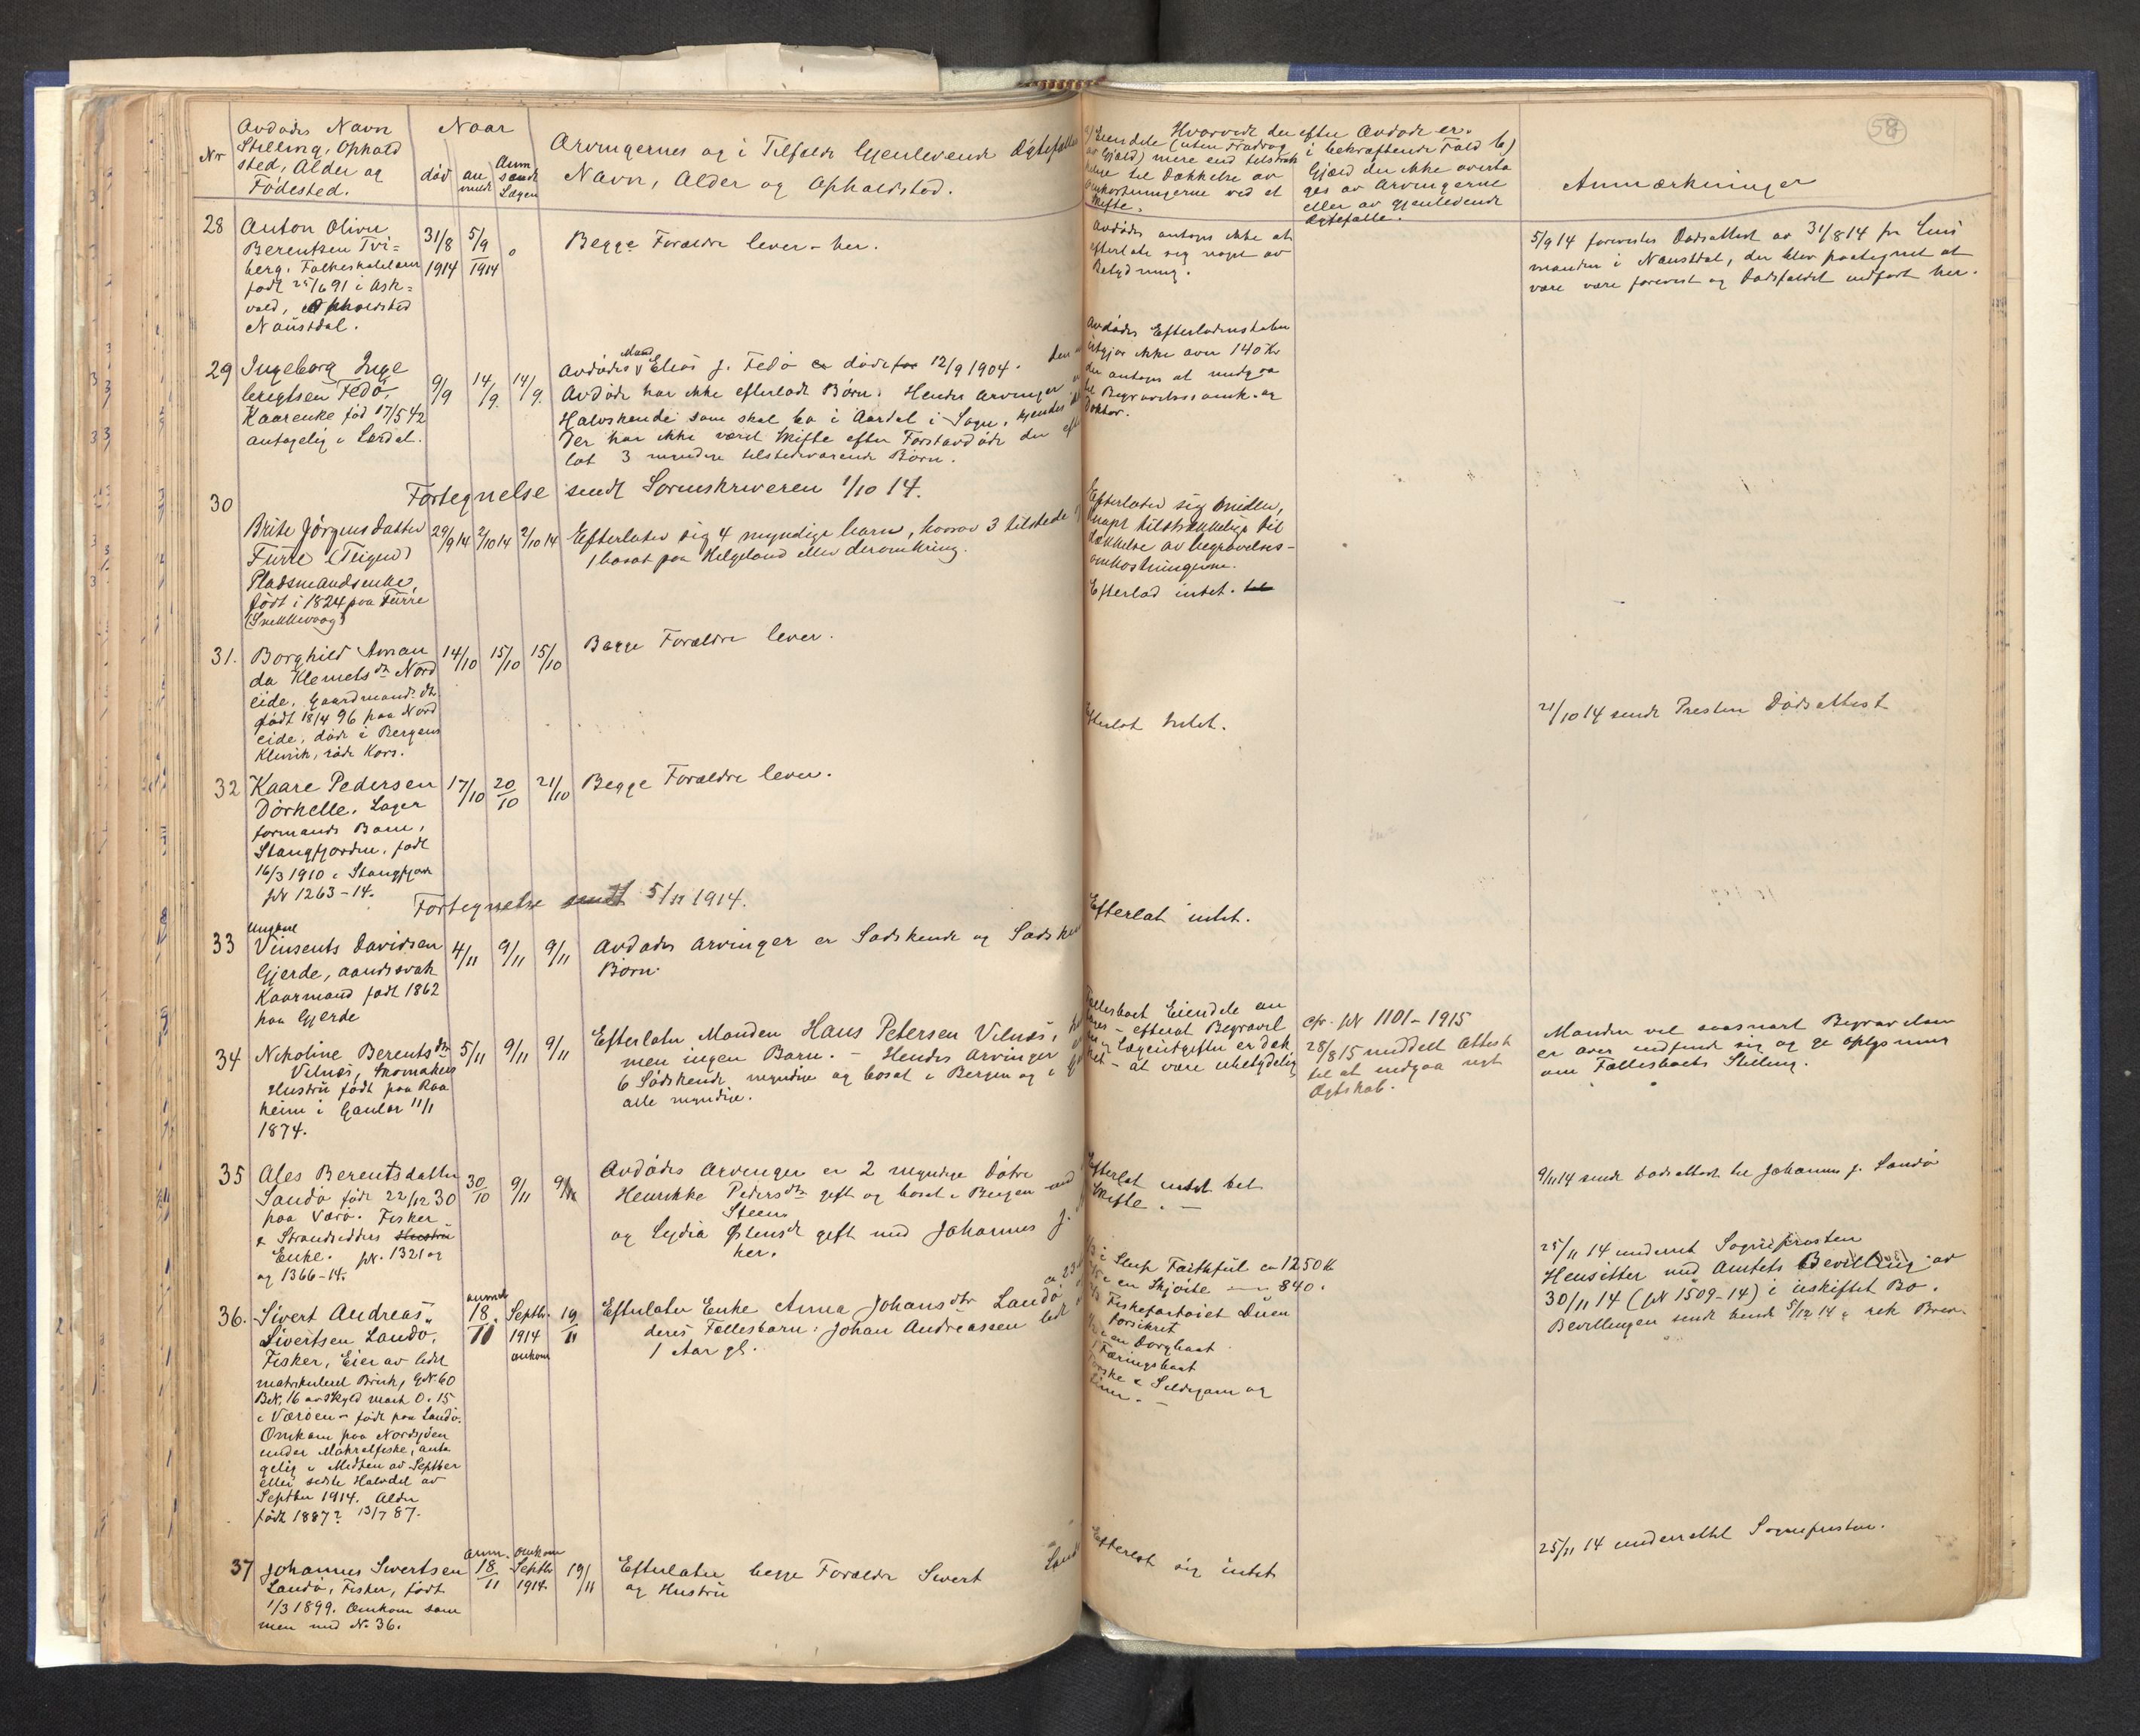 58
Nr
Avdødes Navn
Stilling, Ophold
sted, Alder og
Fødested.
Naar
død
an
meldt
Anm
sendt
Lægen
Arvingernes og i Tilfælde Gjenlevende Ægtefælles
Navn, Alder og Opholdsted.
Hvorvidt der efter Avdøde er:
a) Eiendele (uten Fradrag
av Gjæld) mere end tilstræk
kelige til Dækkelse av
Omkostningerne ved et
Skifte.
i bekræftende Fald b)
Gjæld der ikke overta
ges av Arvingerne
eller av gjenlevende
Ægtefælle.
Anmærkninger
28
Anton Oliver
Berentsen Tvi=
berg, Folkeskolelærer
født 25/6 91 i Ask=
vold, Opholdsted
Naustdal.
31/8
1914
5/9
1914
0
Begge Forældre lever - her.
Avdøde antages ikke at
efterlate sig noget av
Betydning.
5/9 14 forevistes Dødsattest av 31/8 14 fra Lens
manden i Naustdal, der blev paategnet at
være være forevist og Dødsfaldet indført her.
29
Ingeborg Inge
brigtsen Fedø,
Kaarenke fød 17/5 42
antagelig i Lærdal.
9/9
14/9
14/9
Avdødes Mand Elias J. Fedø døde 12/9 1904. Den
Avdøde har ikke efterladt Børn. Hendes Arvinger
Halvskende som skal bo i Aardal i Sogn, kjendes
Der har ikke været Skifte efter Førstavdøde der efter
lot 3 myndige tilstedeværende Børn.
Avdødes Efterladenskaber
utgjør ikke over 140 Kr
der antages at medgaa
til Begravelsesomk. og
Doktor.
30
Fortegnelse sendt Sorenskriveren 1/10 14.
Brite Jørgensdatter
Furre (Teigen)
Pladsmandsenke,
født i 1824 paa Furre
(Snekkevaag)
29/9 14
2/10 14
2/10 14
Efterlater sig 4 myndige barn, hvorav 3 tilstede
1 bosat paa Helgeland eller deromkring.
Efterlater sig midler,
knapt tilstrækkelige til
dækkelse av begravelses-
omkostningerne.
Efterlod intet.
31.
Borghild Aman
da Klemetsdtr Nord
eide, Gaardmands dtr
født 18/4 96 paa Nord
eide, døde i Bergens
Klinik, røde Kors.
14/10
15/10
15/10
Begge Forældre lever.
Efterlot Intet.
21/10 14 sendt Presten Dødsattest
32
Kaare Pedersen
Dørhelle, Lager
formands Barn,
Stangfjorden, født
16/3 1910 i Stangfjord
JN 1263-14.
17/10
20/10
21/10
Begge Forældre lever.
Fortegnelse sendt 5/11 1914.
33
Ungkarl
Vinsents Davidsen
Gjerde, aandssvak
Kaarmand født 1862
paa Gjerde
4/11
9/11
9/11
Avdødes Arvinger er Sødskende og Sødsken
Børn.
Efterlot intet.
34
Nikoline Berentsdtr
Vilnes, Skomakers
Hustru født paa Roa
heim i Gaular 11/1
1874.
5/11
9/11
9/11
Efterlater Manden Hans Petersen Vilnes,
men ingen Barn. - Hendes Arvinger
6 Sødskende, myndige og bosat i Bergen og i
alle myndige.
Fællesboet Eiendele an
tages - efterat Begravel
og Lægeutgifter er dæk
ket - at være ubetydelig
Cfr. JN 1101-1915
28/8 15 meddelt Attest
til at indgaa nyt
Ægtskab.
Manden vil saasnart Begravelsen
er over indfinde sig og gi oplysning
om Fællesboets Stilling.
35
Ales Berentsdatter
Sandø født 22/12 30
paa Værø. Fisker
& Strandsidders Hustru
Enke. JN. 1321 og
og 1366-14.
30/10
9/11
9/11
Avdødes Arvinger er 2 myndige Døtre
Henrikke Pedersdtr gift og bosat i Bergen med
Steen
og Lydia Østensdtr gift med Johannes J.
her.
Efterlot intet bet
Skifte. -
9/11 14 sendt Dødsattest til Johannes J. Sandø
36.
Sivert Andreas
Sivertsen Landø,
Fisker, Eier av lidet
matrikuleret Bruk, GN. 60
BN. 16 av Skyld mark 0.15
i Værøen - født paa Landø.
Omkom paa Nordsjøen
under Makrelfiske, anta
gelig i Midten av Septber
eller sidste Halvdel av
Septber 1914. Alder
født 1887? 13/7 87.
anmeldt
18/11
Septbr.
1914
omkom
19/11
Efterlater Enke Anna Johansdtr Landø ca 23
deres Fællesbarn: Johan Andreassen
1 Aar gl.
i Slup Faithful ca 1250 Kr
i en Skjøite - 840.
Fiskefartøiet Duen
forsikret
i en Dorgbaat
1 Færingsbaat
Torske & Sildegarn og
Liner. -
25/11 14 underret Sogneprosten
Hensitter med Amtets Bevilling av
30/11 14 (JN 1509-14) i uskiftet Bo.
Bevillingen sendt hende 5/12 14 i rek Brev.
37
Johannes Sivertsen
Landø, Fisker, født
1/3 1899. Omkom sam
men med No 36.
anm.
18/11
omkom
Septbr
1914.
19/11
Efterlater begge Forældre Sivert Land
og Hustru
Efterlot sig intet
25/11 14 underrettet Sogneprosten.